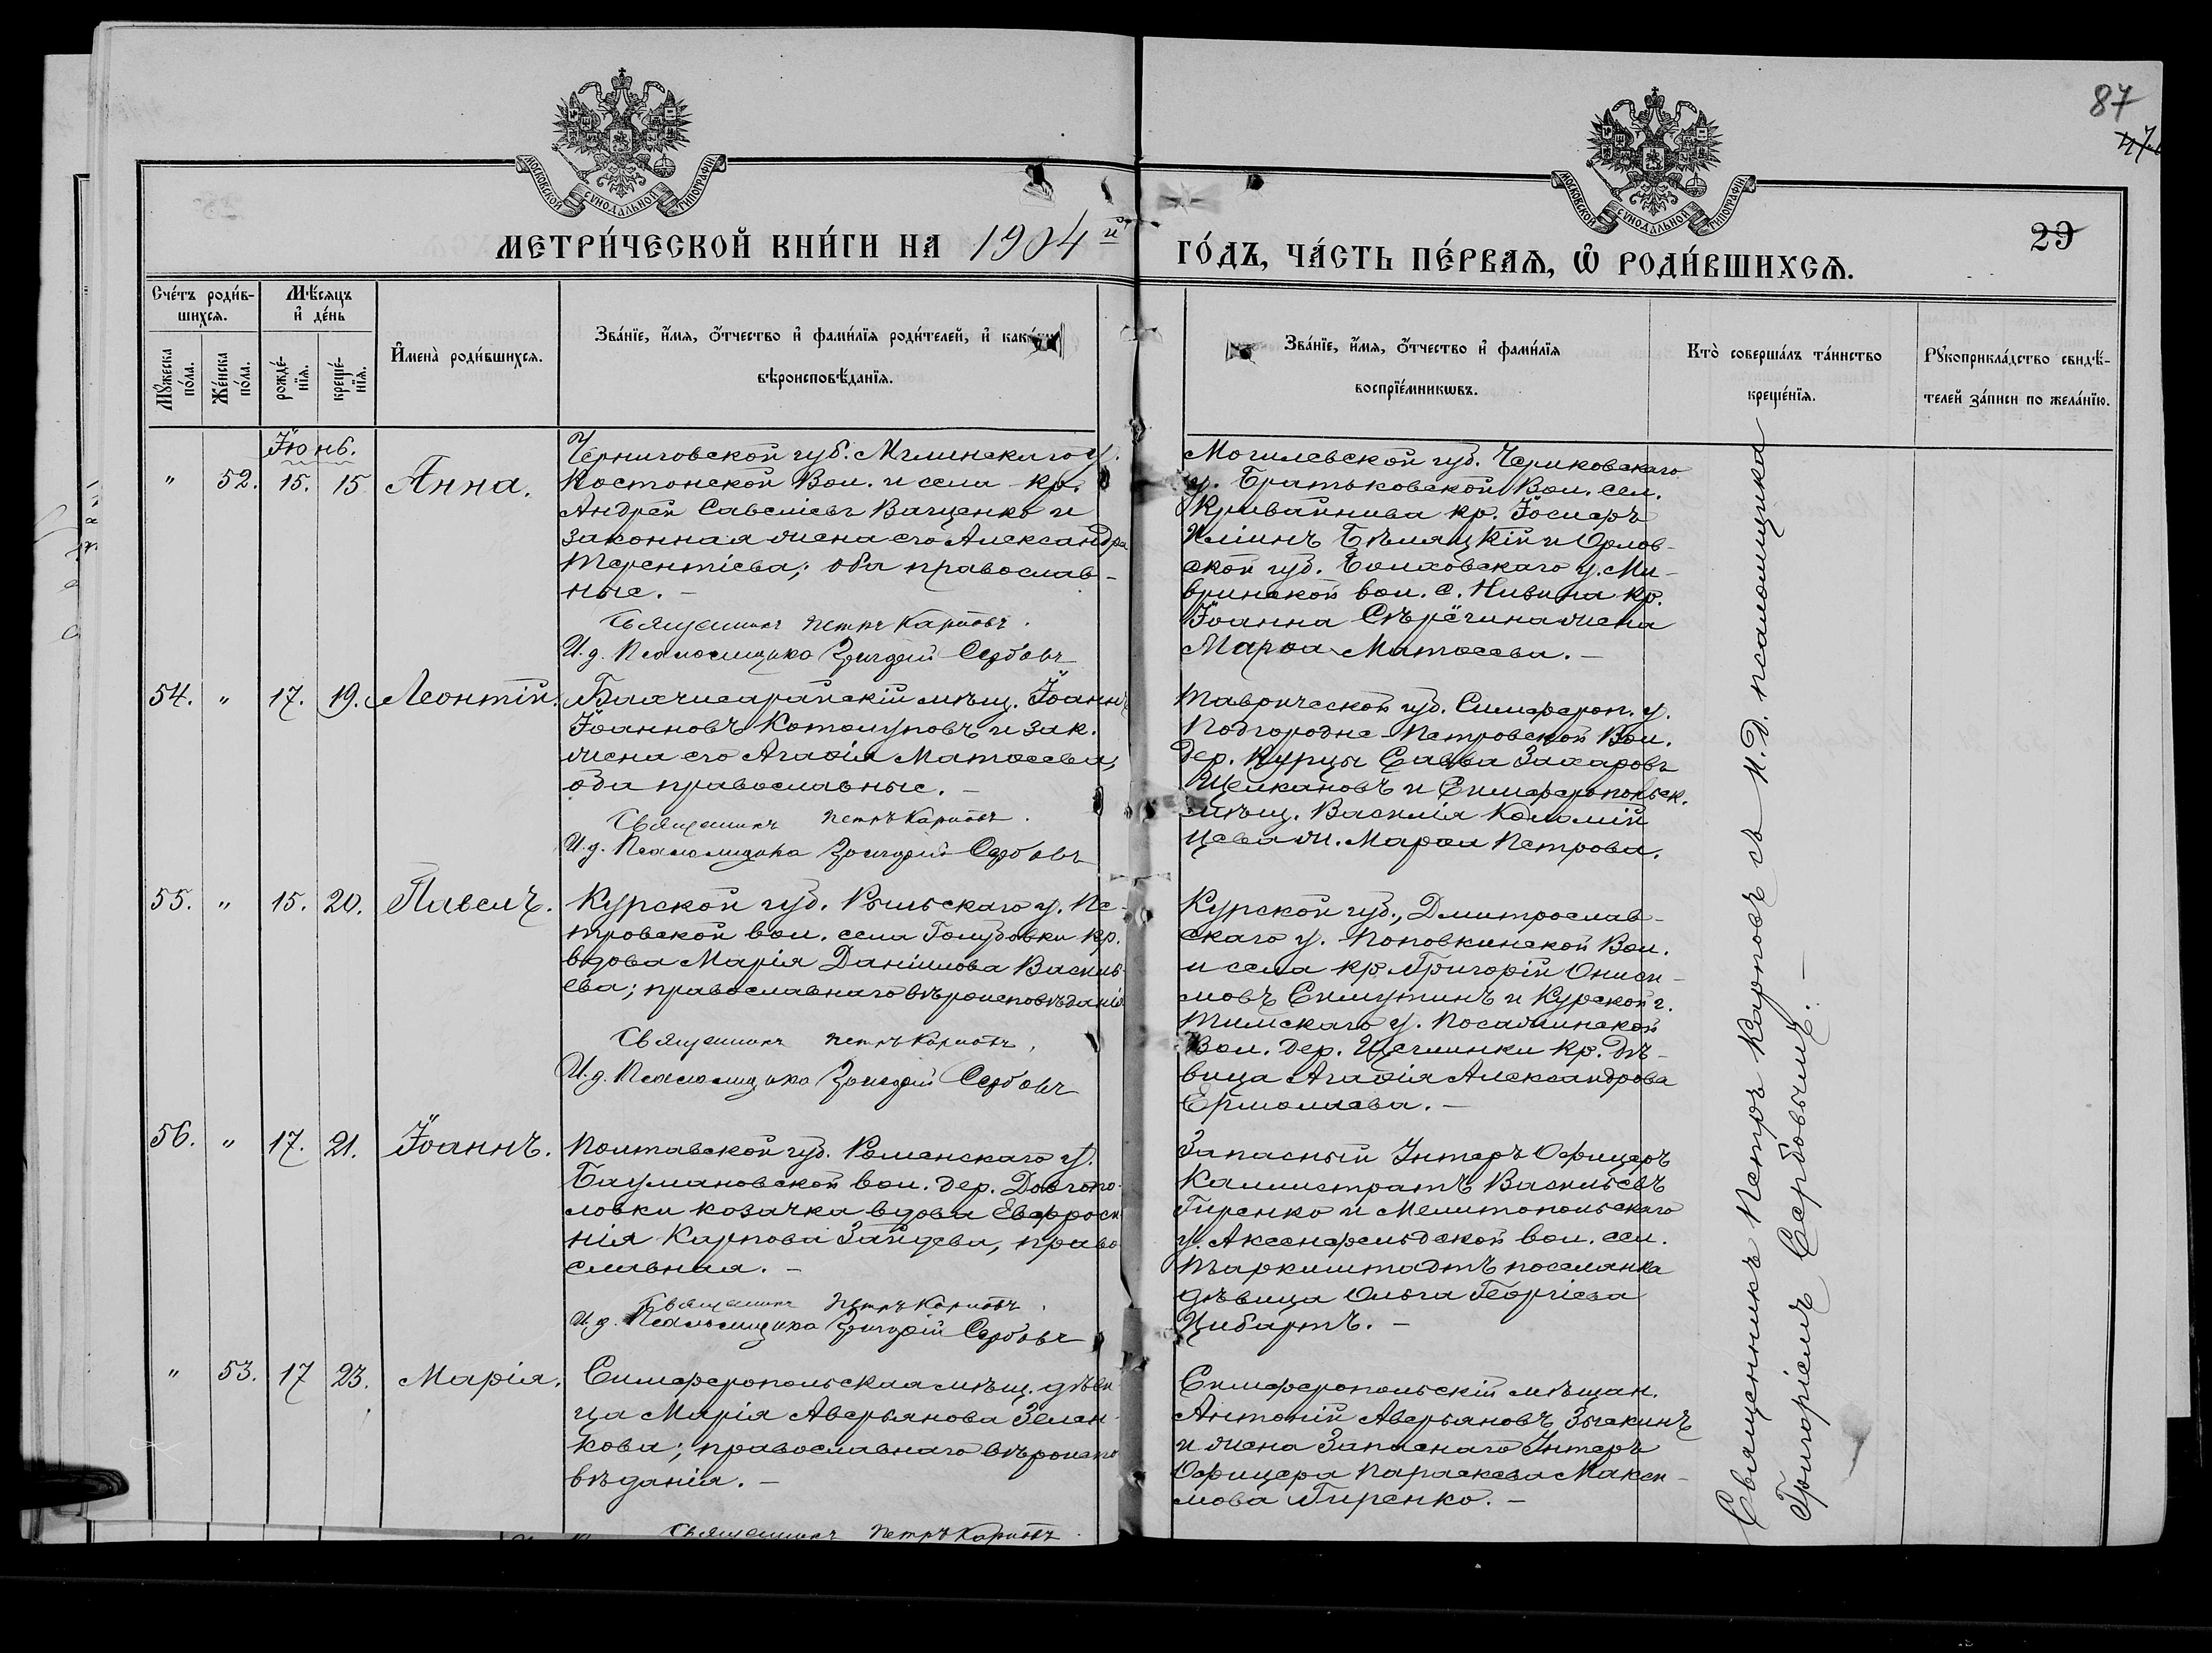 87
29
МОСКОВСКОЙ СѴНОДАЛЬНОЙ ТИПОГРАФІИ
МОСКОВСКОЙ СѴНОДАЛЬНОЙ ТИПОГРАФІИ
МЕТРИ́ЧЕСКОЙ КНИ́ГИ НА 1904й
ГО́ДЪ, ЧА́СТЬ ПЕ́РВАѦ, Ѡ҆ РОДИ́ВШИХСѦ.
Сче́тъ роди́в-
шихсѧ.
Мѹ́жеска по́ла.
Же́нска по́ла.
Мѣ́сѧцъ и҆ де́нь
рожде́-
нїѧ.
креще́-
нїѧ.
И҆мена̀ роди́вшихсѧ.
Зва́нїе, и҆́мѧ, ѻ҆́тчество и҆ фами́лїѧ роди́телей, и҆
вѣроисповѣ́данїѧ.
Зва́нїе, и҆́мѧ, ѻ҆́тчество и҆ фами́лїѧ
воспрїе́мникѡвъ.
Кто̀ соверша́лъ та́инство
креще́нїѧ.
Рꙋкоприкла́дство свидѣ́-
телей за́писи по жела́нїю.
Іюнь.
" 52. 15. 15 Анна.
Черниговской губ. Мглинскаго у.
Костонской Вол. и села кр.
Андрей Савеліевъ Ващенко и
законная жена его Александра
Терентіева; оба православ-
ные. –
Священникъ Петръ Карповъ.
И.д. Псаломщика Григорій Сербовъ
Могилевской губ. Чериковскаго
у. Братьковской Вол. сел.
кр. Іосифъ
Иліинъ Бѣляцкій и Орлов-
ской губ. Болховскаго у. Ми-
вринской вол. с. Нивина кр.
Іоанна жена
Марѳа Матѳеева. –
54. " 17. 19. Леонтій.
Бахчисарайскій мѣщ. Іоаннъ
Іоанновъ Котолуповъ и зак.
жена его Агаѳія Матѳеева,
оба православные. –
Священникъ Петръ Карповъ.
И.д. Псаломщика Григорій Сербовъ
Таврической губ. Симфероп. у.
Подгородне-Петровской Вол.
дер. Курцы Савва Захаровъ
Щекановъ и Симферопольск.
мѣщ. Василія Коломій
цева ж. Марѳа Петрова.
55. " 15. 20. Павелъ.
Курской губ. Рыльскаго у. Пе-
тровской вол. села Голубовки кр.
вдова Марія Даніилова Василь-
ева; православнаго вѣроисповѣданія
Священникъ Петръ Карповъ.
И.д. Псаломщика Григорій Сербовъ
Курской губ., Дмитрослав-
скаго у. Поповкинской Вол.
и села кр. Григорій Ониси-
мовъ Симутинъ и Курской г.
Тимскаго у. Посажинской
Вол. дер. Щеглинки кр. дѣ-
вица Агаѳія Александрова
Ермолаева. –
56. " 17. 21. Іоаннъ.
Полтавской губ. Роменскаго у.
Баумановской вол. дер. Довгопо-
ловки козачка вдова Евфроси
нія Карпова Зайцева, право
славная. –
Священникъ Петръ Карповъ.
И.д. Псаломщика Григорій Сербовъ
Запасный Унтеръ Офицеръ
Каллистратъ Васильевъ
Гиренко и Мелитопольскаго
у. Аксенфельдской вол. сел.
поселянка
дѣвица Ольга Георгіева
Цибартъ. –
" 53. 17 23. Марія.
Симферопольская мѣщ. дѣви
ца Марія Аверьянова Зелен-
кова; православнаго вѣроиспо
вѣданія. –
Священникъ Петръ Карповъ.
Симферопольскій мѣщан.
Антоній Аверьяновъ Зыскинъ
и жена Запаснаго Унтеръ
Офицера Параскева Макси-
мова Гиренко. –
Священникъ Петръ Карповъ съ И.Д. псаломщика
Григоріемъ Сербовымъ. –